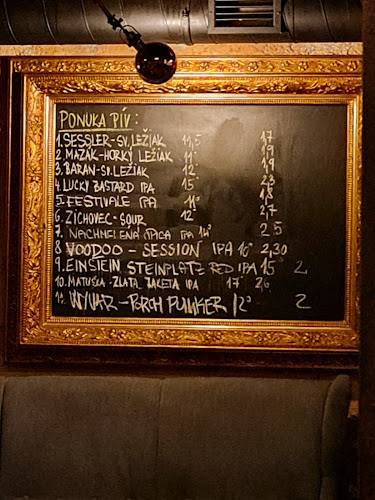 PONUKA PÍV:
1. SESSLER-SV. LEŽIAK 11,5 1,7
2. MAZÁK-HORKÝ LEŽIAK 11° 1,9
3. BARAN-SV. LEŽIAK 12° 1,9
4. LUCKY BASTARD IPA 15° 2,3
5. FESTIVALE IPA 11° 1,8
6. ZICHOVEC-SOUR 12° 2,7
7. NACHMELENÁ OPICA IPA 14° 2,5
8 VOODOO - SESSION IPA 10° 2,30
9. EINSTEIN STEINPLATZ RED IPA 15° 2
10. MATUŠKA-ZLATÁ RAKETA IPA 17° 2,6
11. WYWAR-PORCH PUNKER 12° 2